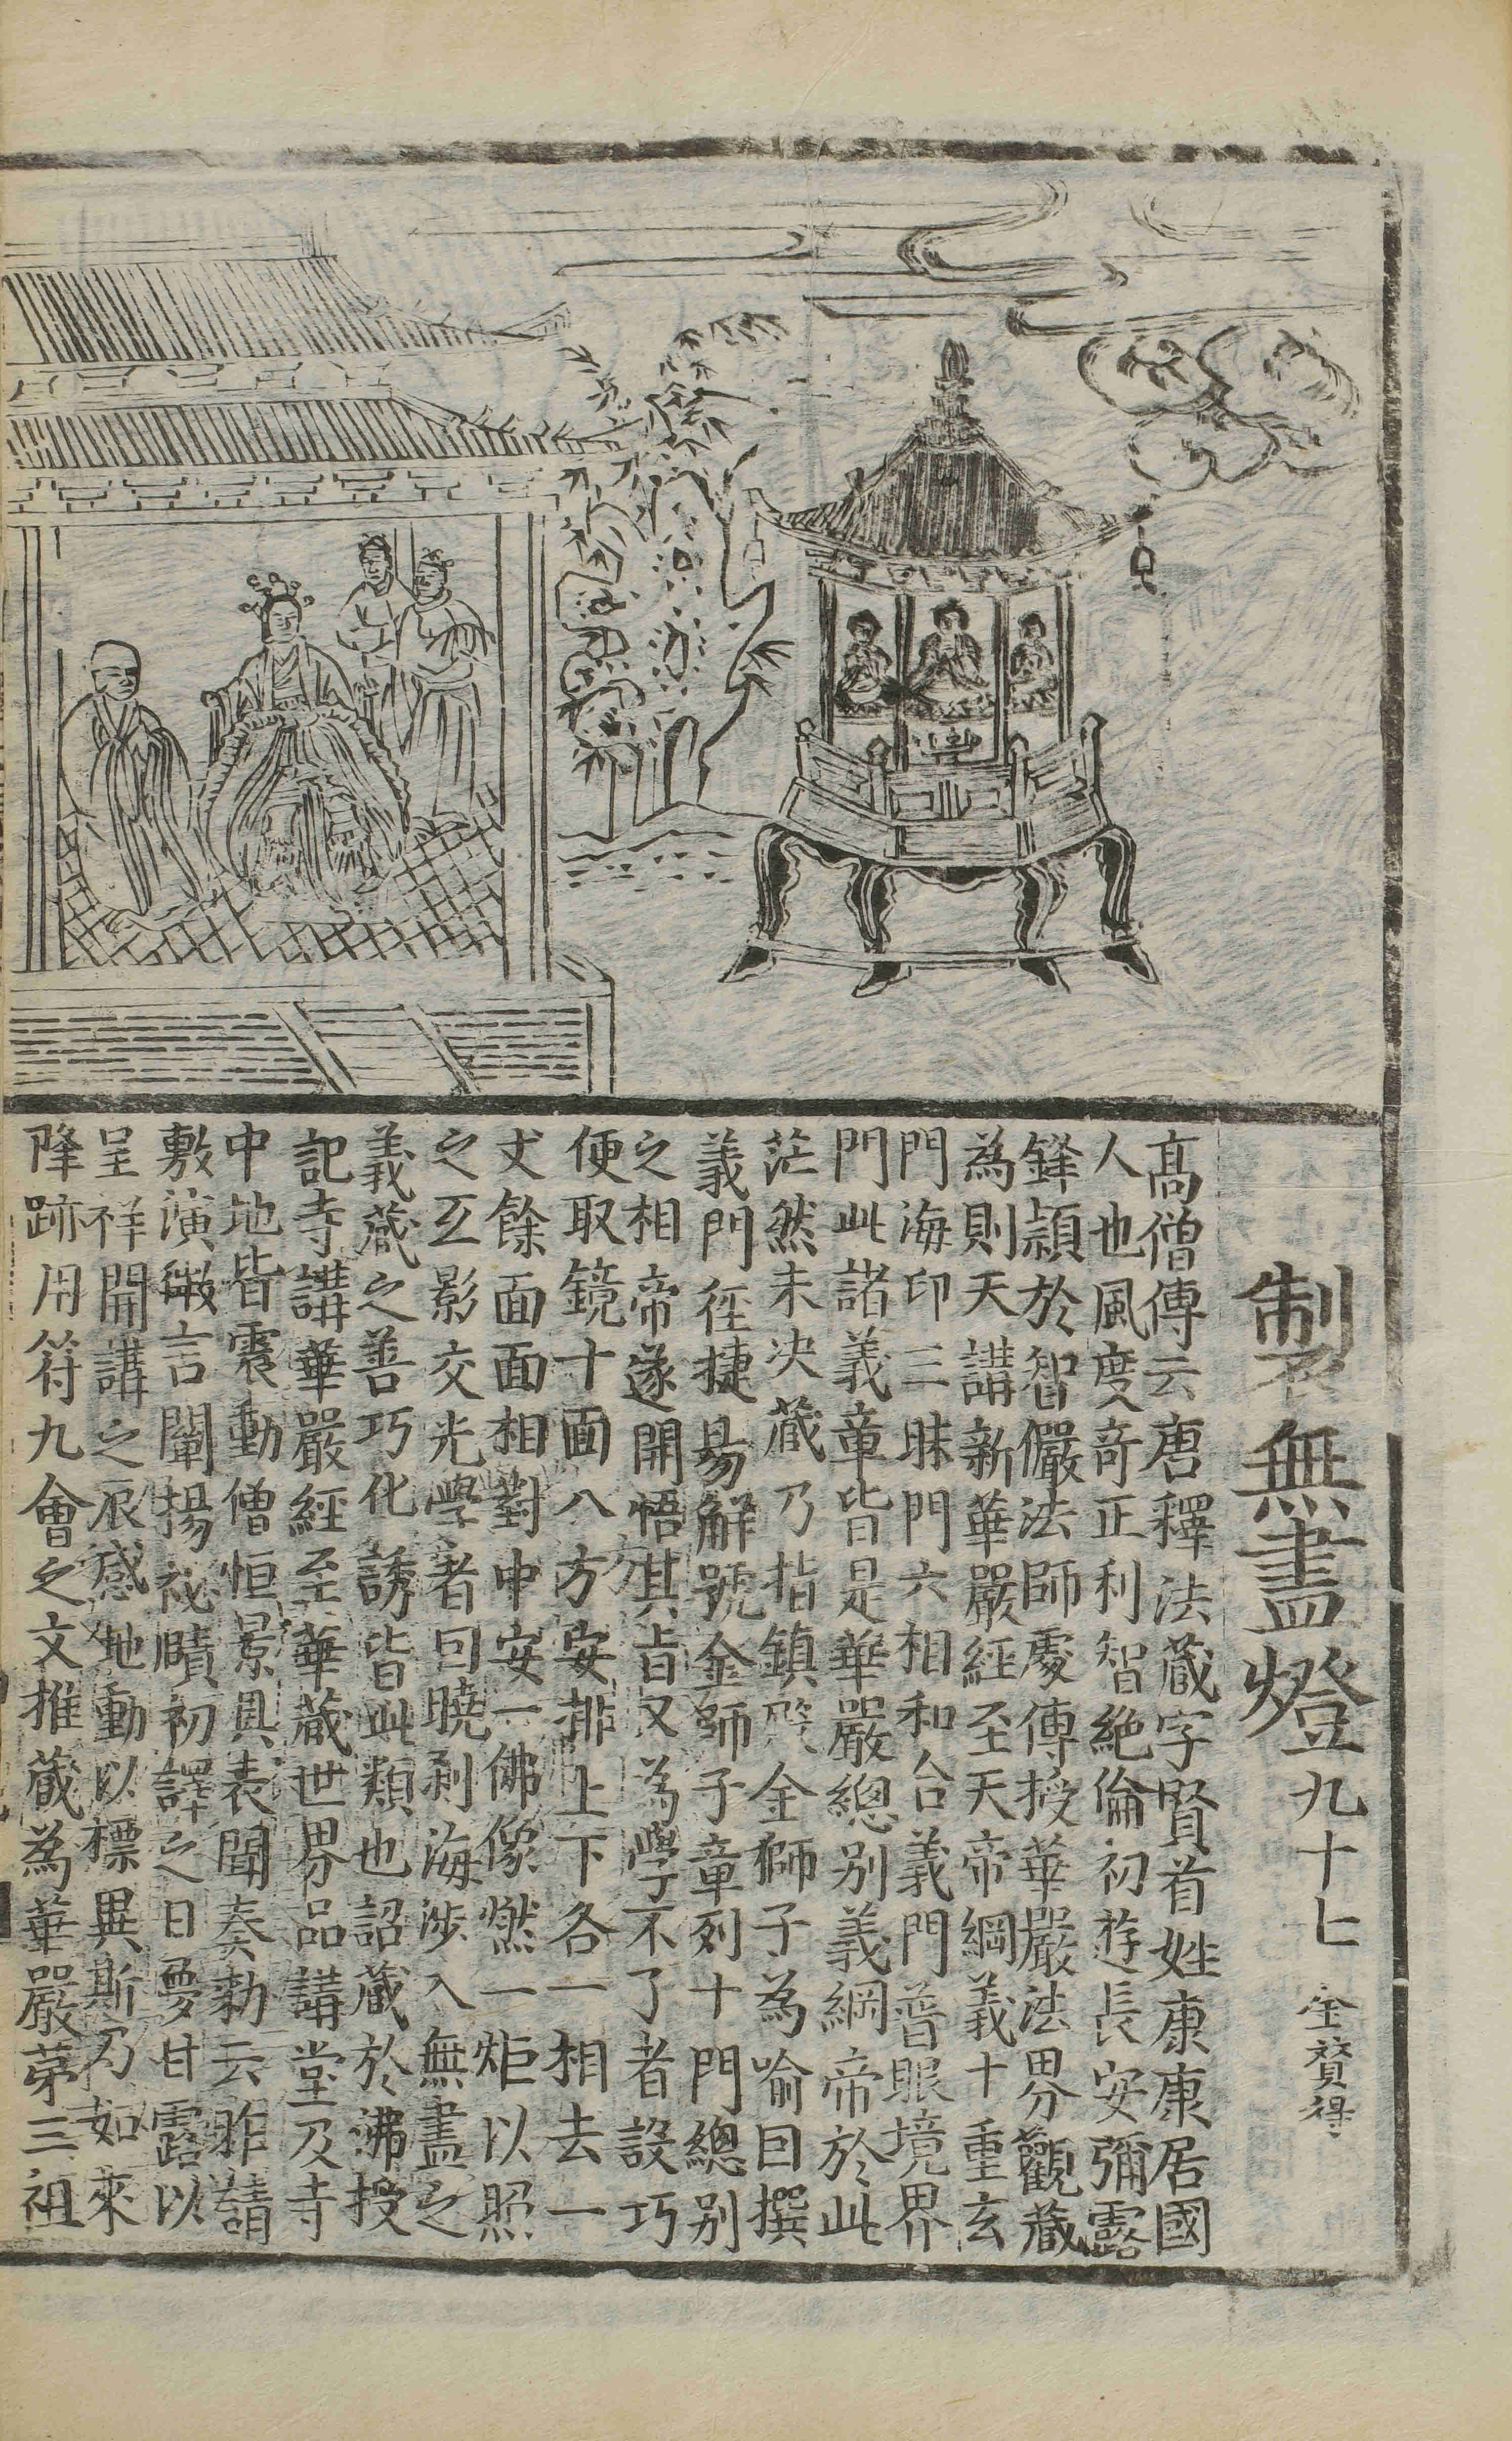 製無盡燈九十七　全贊得
高僧傳云唐釋法藏字賢首姓康康居國
人也風度竒正利智絶倫初遊長安彌露
鋒頴於智儼法師處傳授華嚴法界觀藏
為則天講新華嚴經至天帝網義十重玄
門海印三昧門六相和合義門普眼境界
門此諸義章皆是華嚴總別義網帝於此
茫然未决藏乃指鎮殿金獅子為喻因撰
義門徑捷易解號金師子章列十門總別
之相帝遂開悟其旨又為學不了者設巧
便取鏡十面八方安排上下各一相去一
丈餘面面相對中安一佛像燃一炬以照
之互影交光學者因曉刹海涉入無盡之
義藏之善巧化誘皆此類也詔藏於沸授
記寺講華嚴經至華藏世界品講堂及寺
中地皆震動僧恒景具表聞奏勑云昨請
敷演微言闡揚祕賾初譯之日夢甘露以
呈祥開講之辰感地動以標異斯乃如來
降跡用符九會之文推藏為華嚴苐三祖